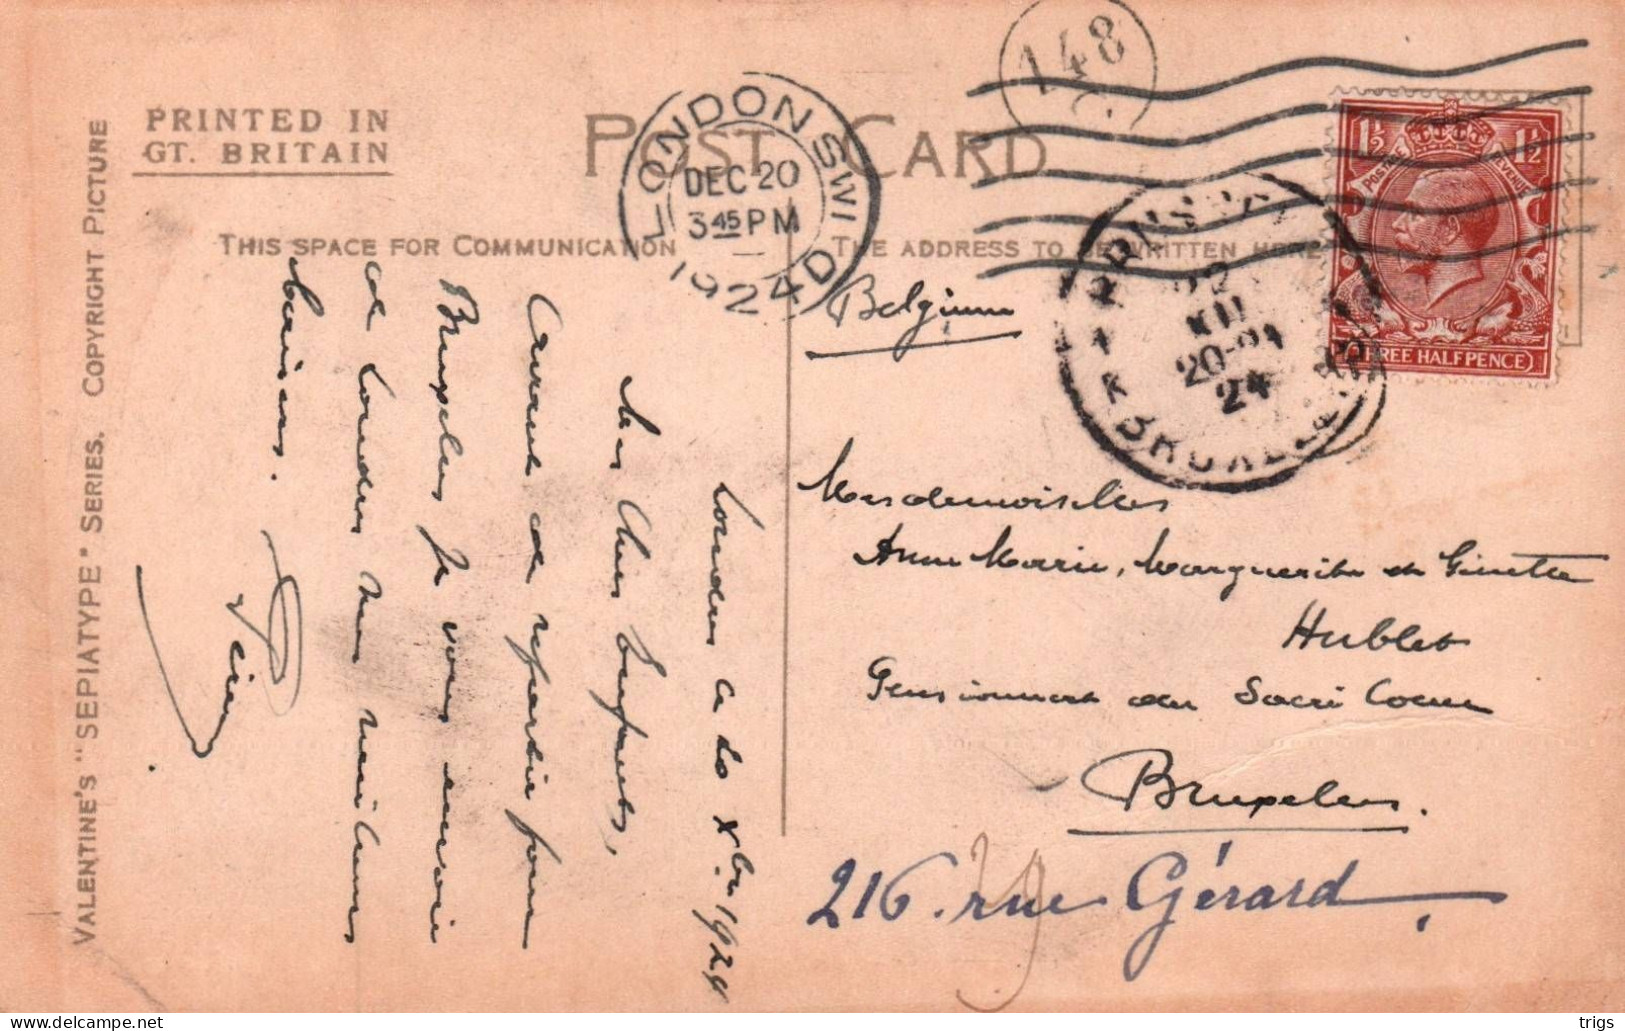 PRINTED IN
GT. BRITAIN
POST CARD
THIS SPACE FOR COMMUNICATION
THE ADDRESS TO BE WRITTEN HERE
VALENTINE'S "SEPIATYPE" SERIES. COPYRIGHT PICTURE
LONDON SW1
DEC 20
3 45 PM
1924 D
148
C
22
XII
20-21
24
1½ 1½
POSTAGE REVENUE
THREE HALFPENCE
Londres ce 20 Xbre 1924
Mes Chers Enfants,
Avant de repartir pour
Bruxelles je vous envoie
de Londres mes meilleurs
baisers.
Belgium
Mesdemoiselles
Anne Marie, Marguerite et Ginette
Hublet
Pensionnat du Sacré Coeur
Bruxelles.
216. rue Gérard
trigs